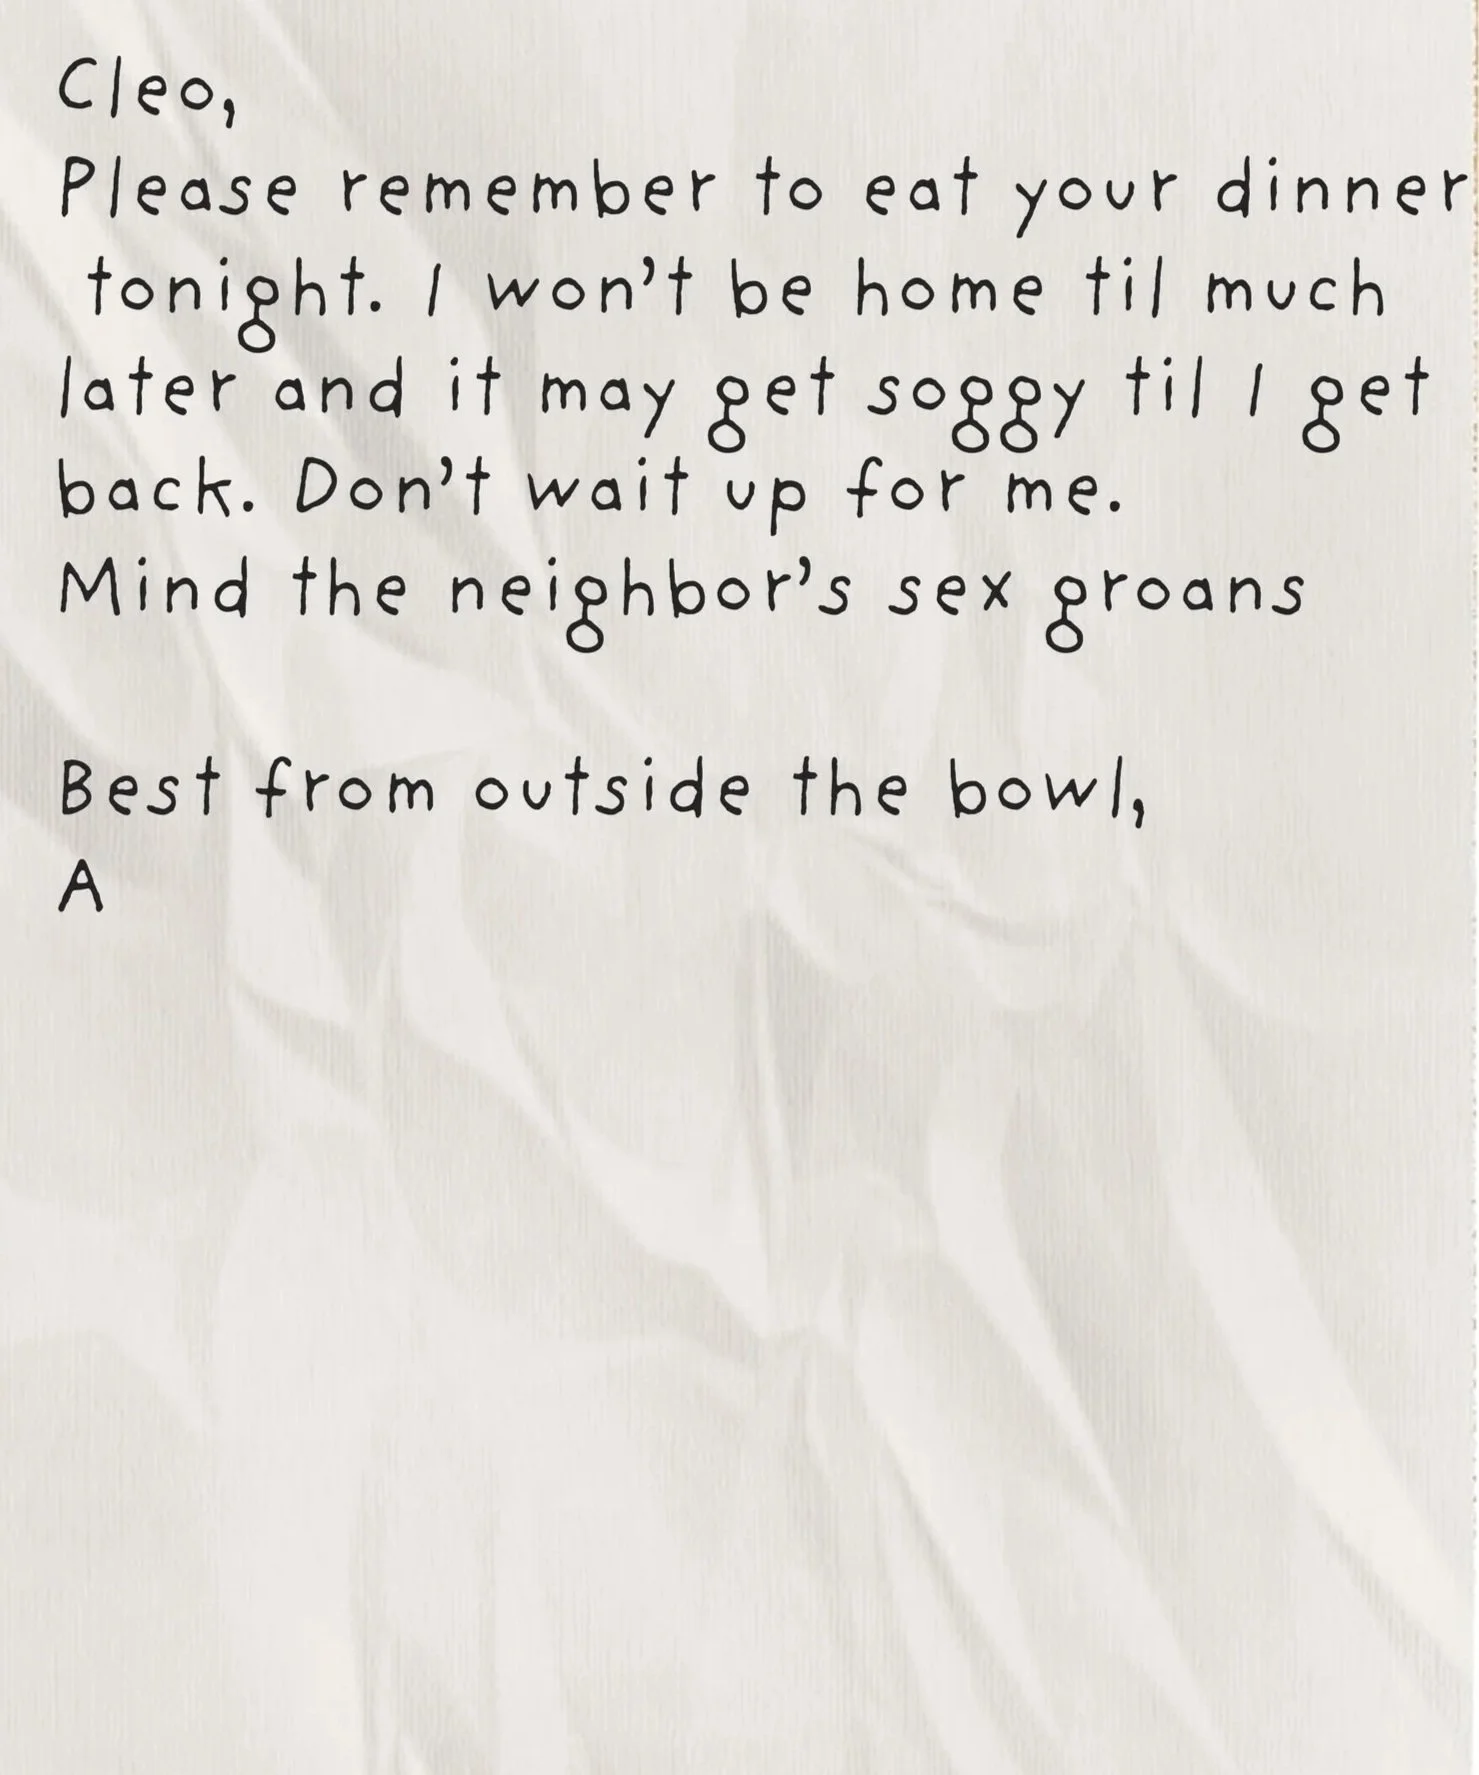 Cleo,
Please remember to eat your dinner
tonight. I won't be home til much
later and it may get soggy til I get
back. Don't wait up for me.
Mind the neighbor's sex groans
Best from outside the bowl,
A